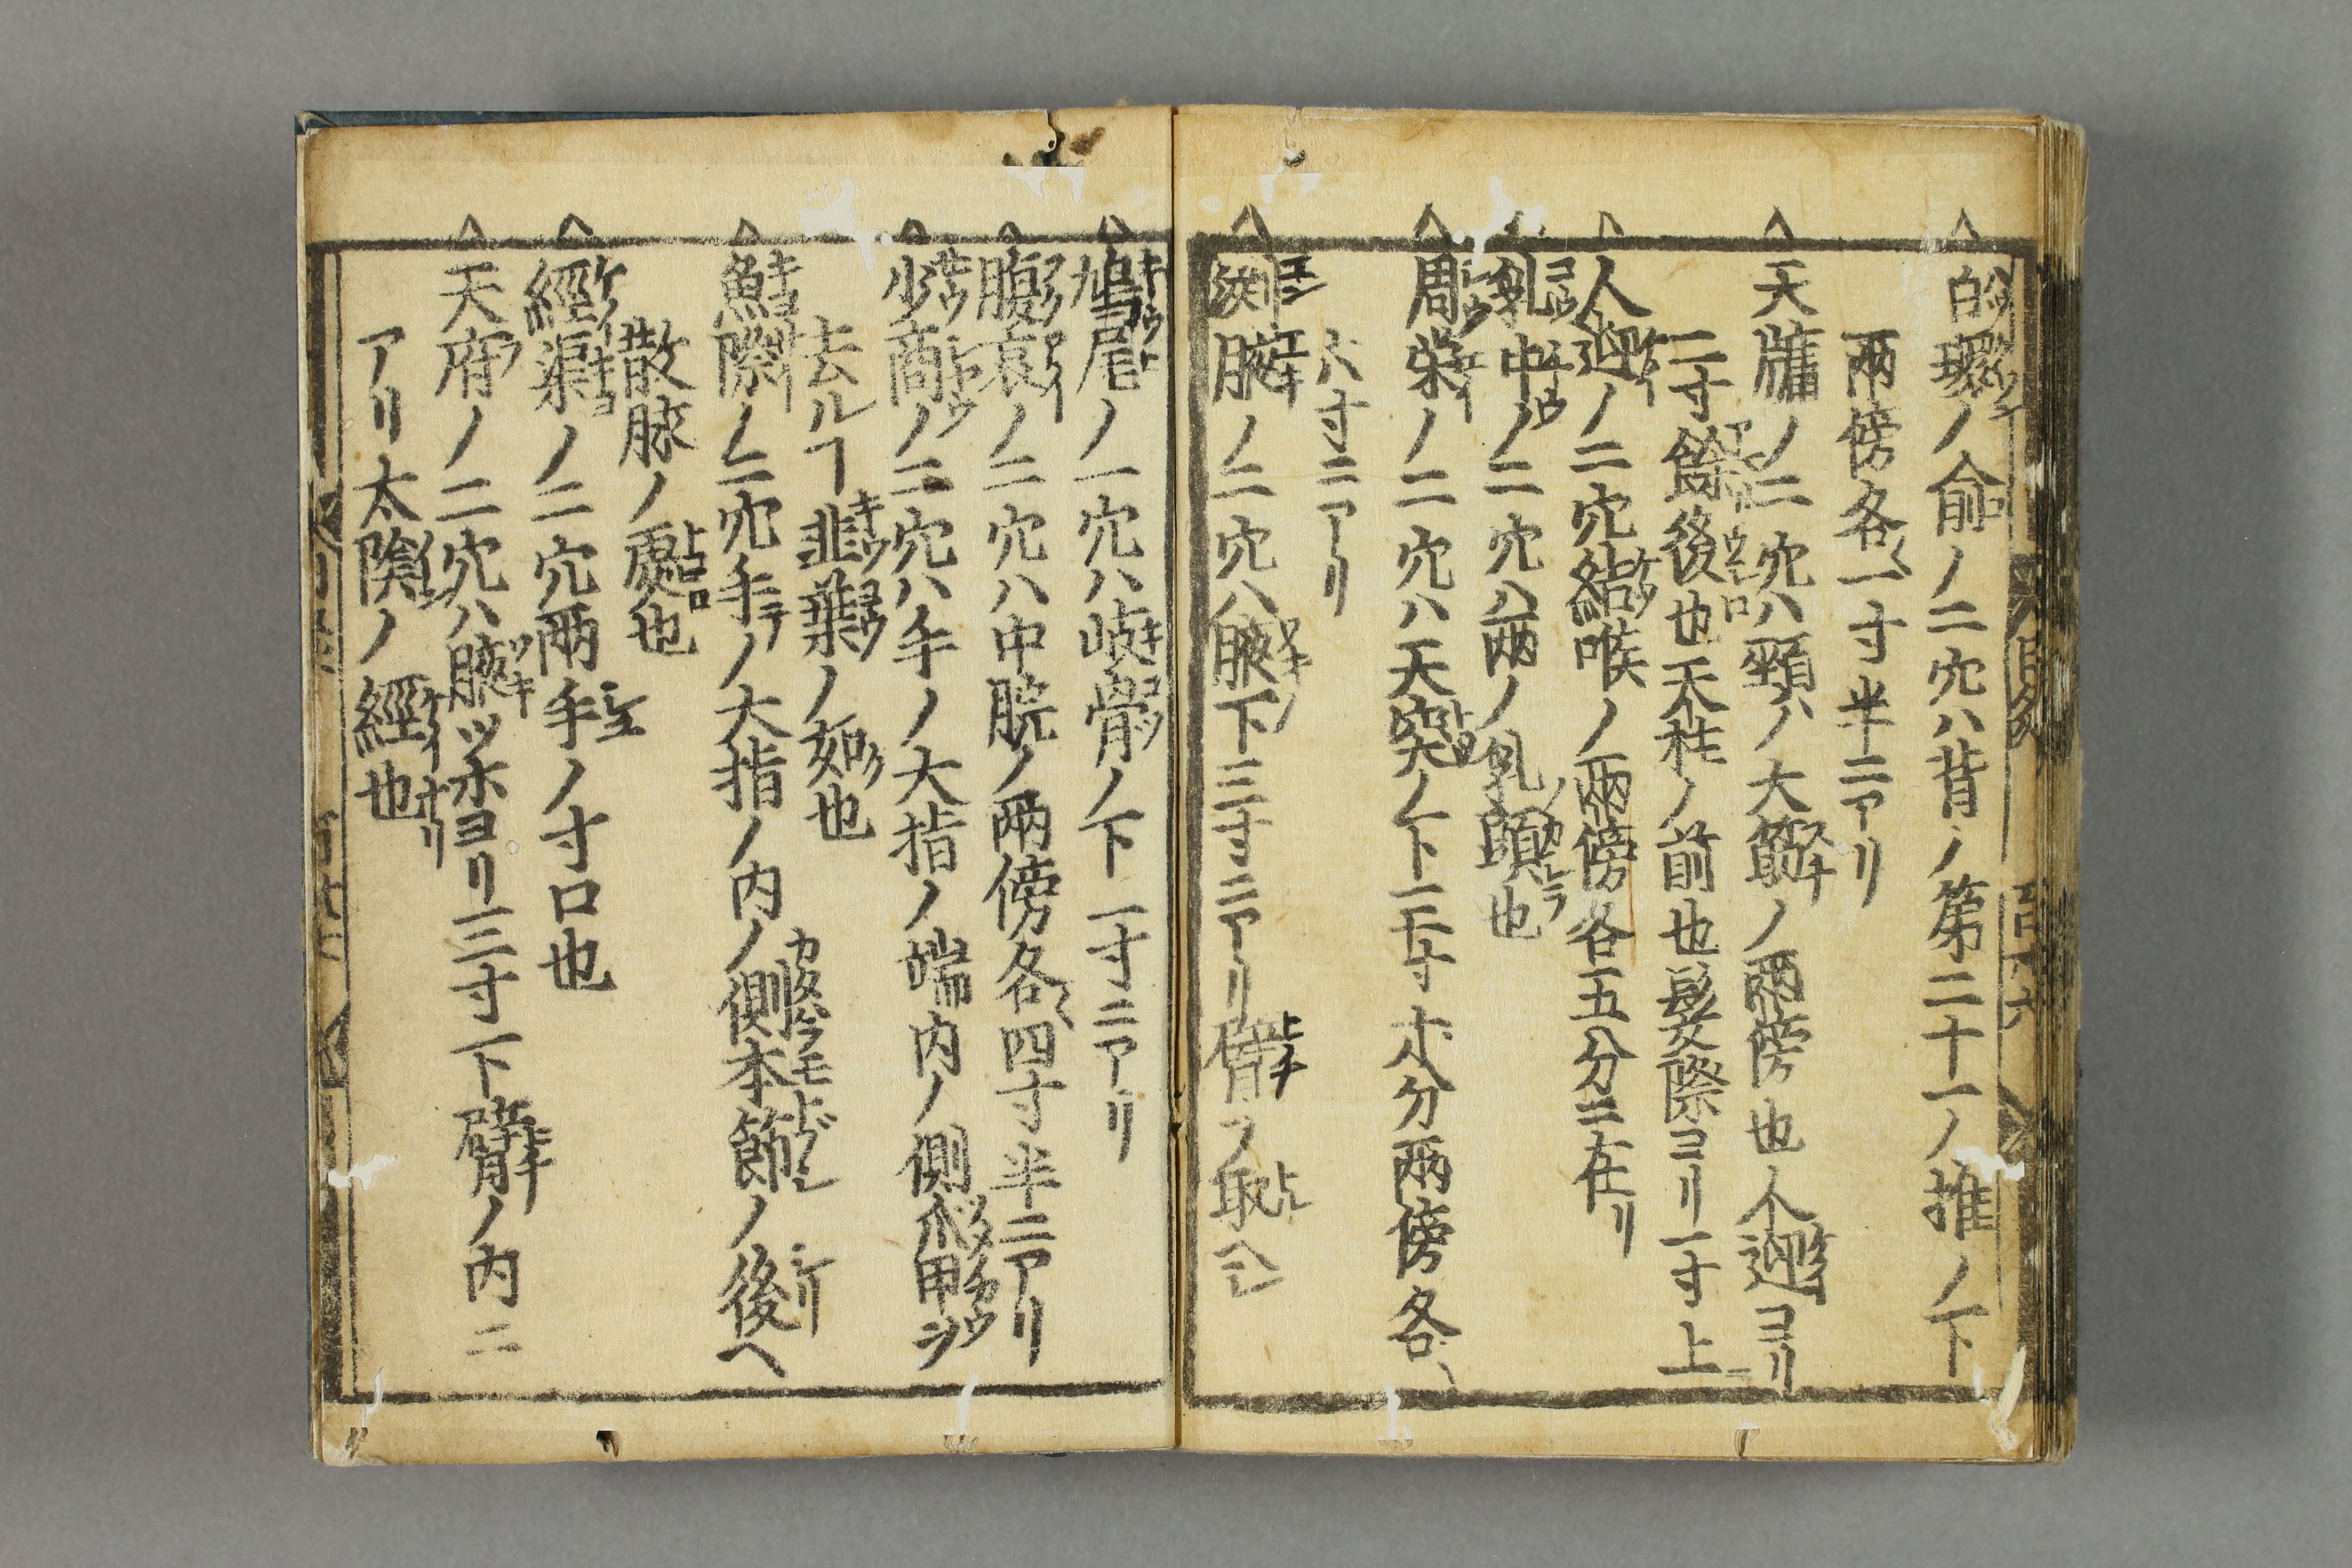 俞ノ二穴ハ背ノ第二十一ノ推ノ下
兩傍各一寸半ニアリ
天牗ノ二穴ハ頸ノ大筋ノ兩傍也人迎ヨリ
二寸餘後也天柱ノ前也髮際ヨリ一寸上
人迎ノ二穴結喉ノ兩傍各五分ニ在リ
乳中ノ二穴ハ兩ノ乳頭也
周栄ノ二穴ハ天突ノ下二寸六分兩傍各
六寸ニアリ
淵腋ノ二穴ハ腋下三寸ニアリ臂ヲ取ヘシ
鳩尾ノ一穴ハ岐骨ノ下一寸ニアリ
腹哀ノ二穴ハ中脘ノ兩傍各四寸半ニアリ
少商ノ二穴ハ手ノ大指ノ端内ノ側爪甲ヲ
去ルヿ韭葉ノ如也
際ノ二穴手ノ大指ノ内ノ側本節ノ後ヘ
散脉ノ處也
經渠ノ二穴兩手ノ寸口也
天府ノ二穴ハ腋ツホヨリ三寸下臂ノ内ニ
アリ太陰ノ經也